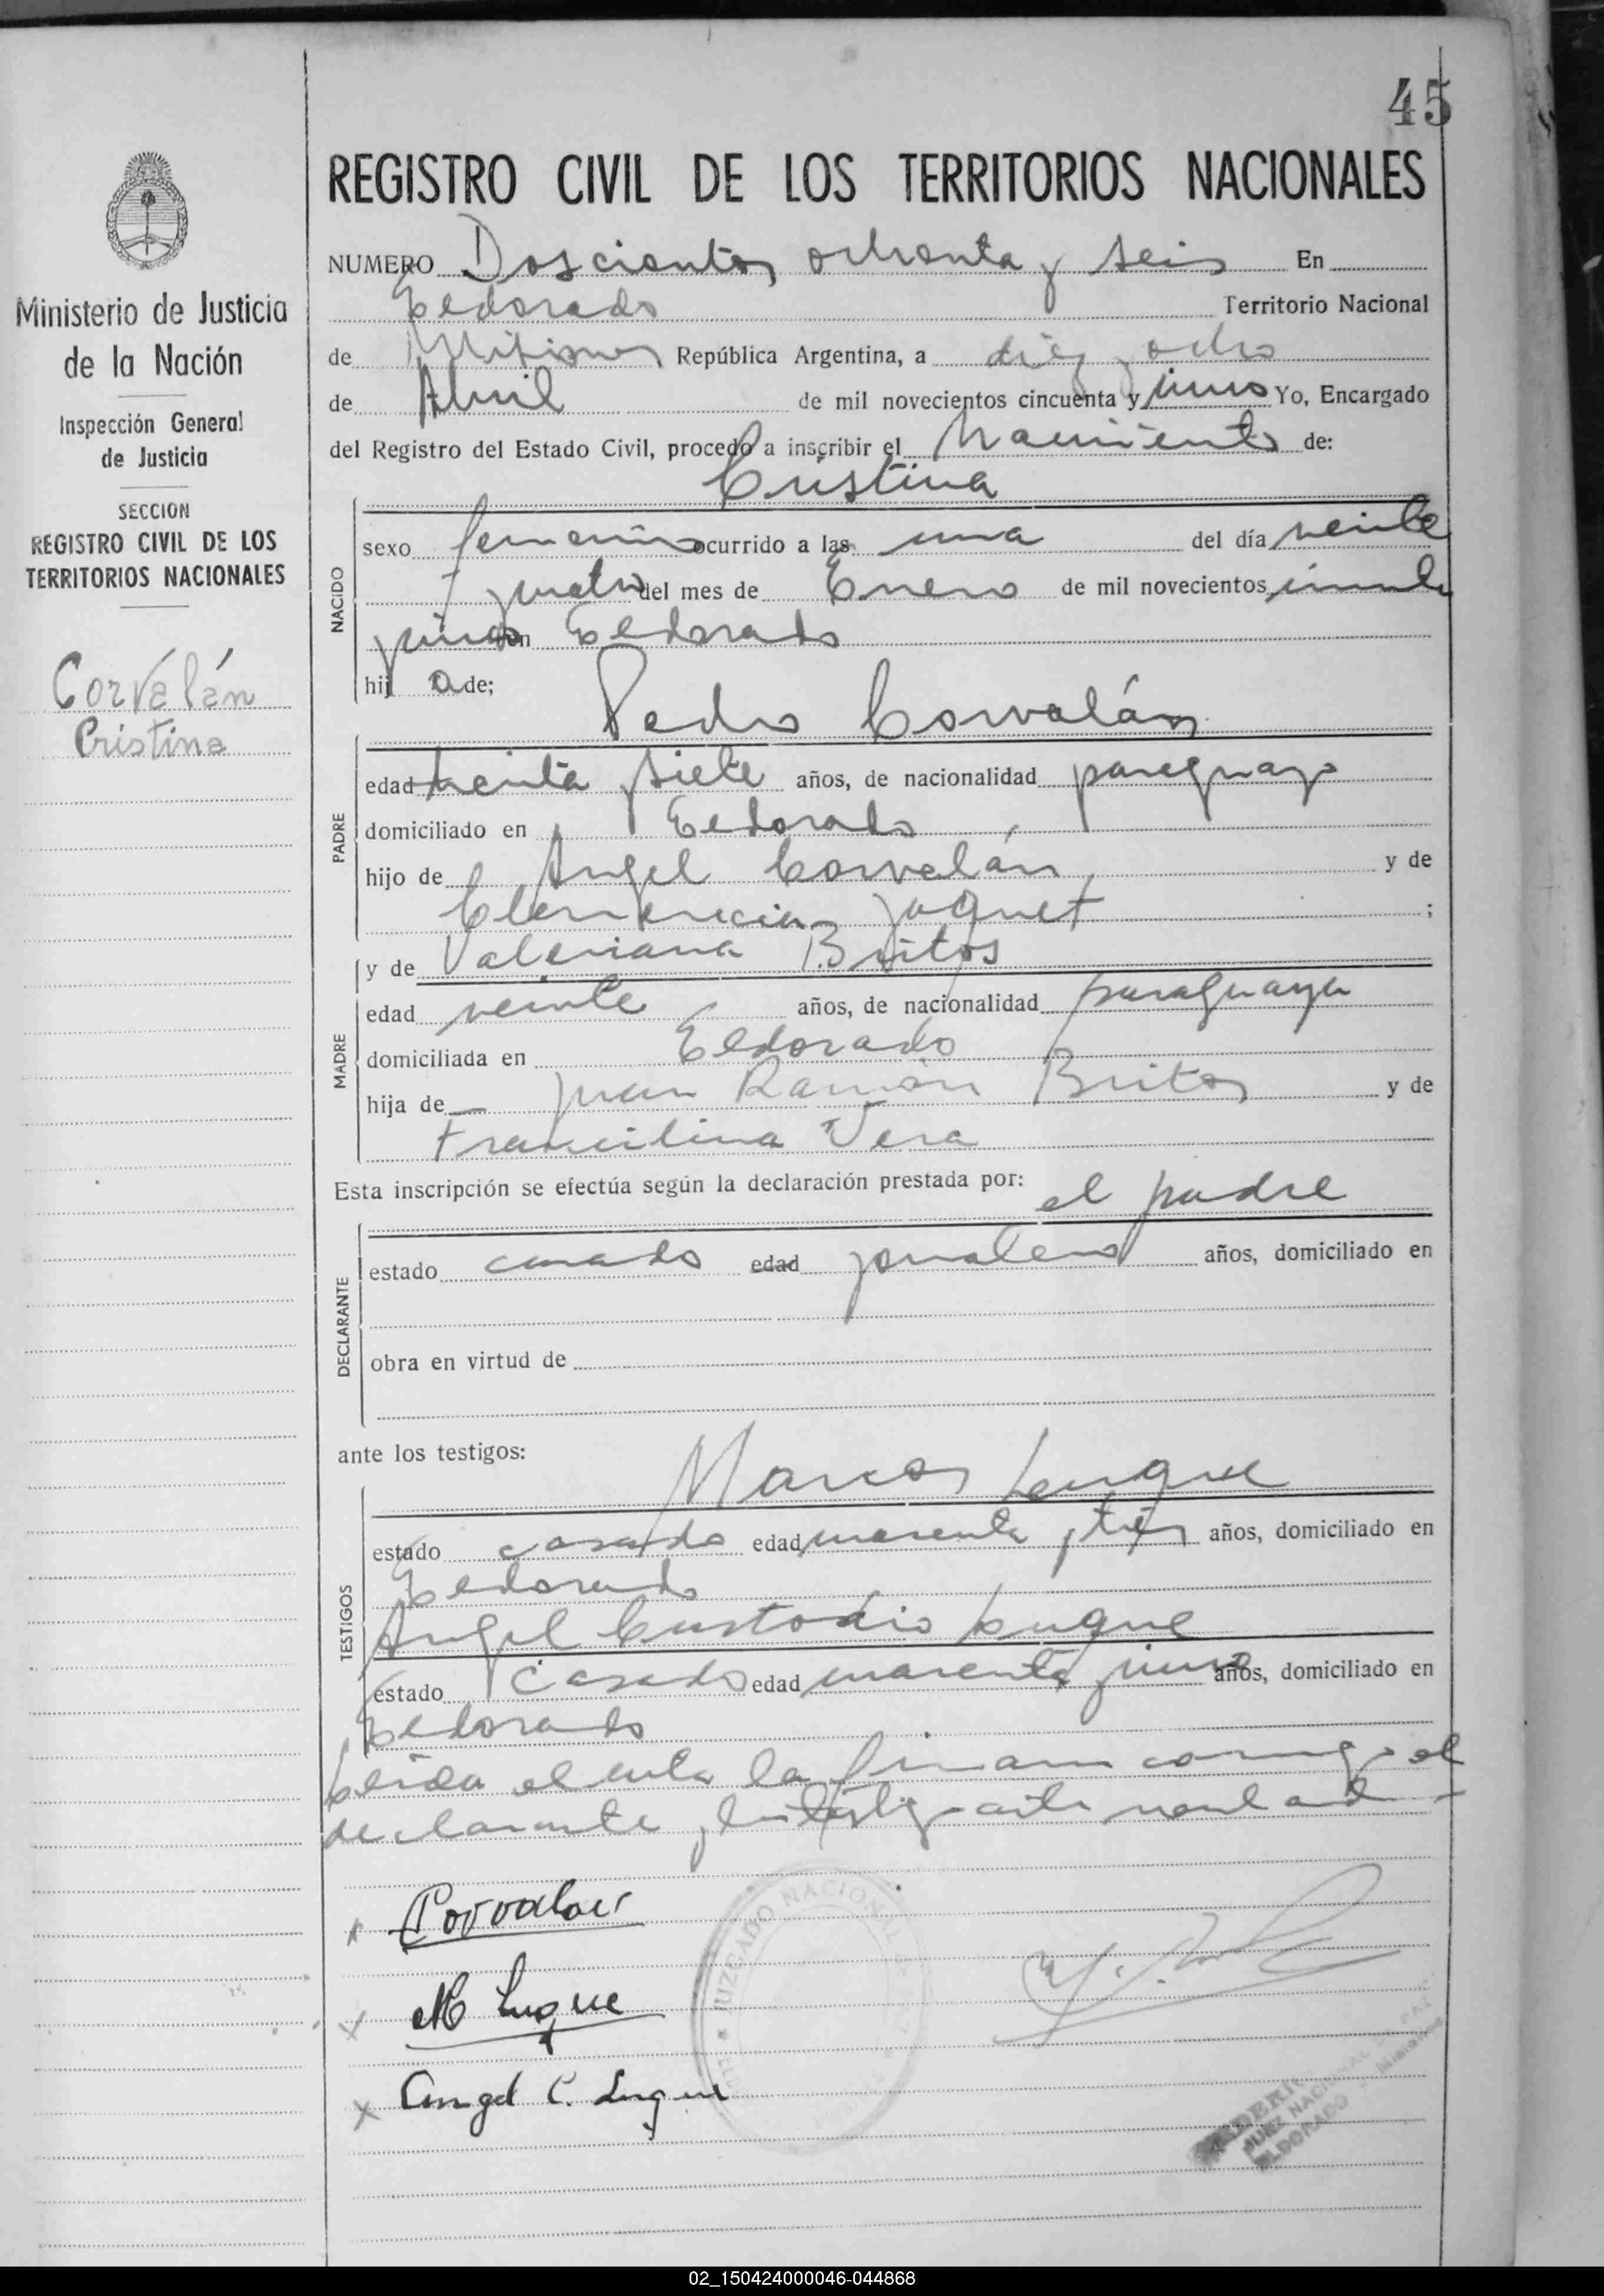 45
REGISTRO CIVIL DE LOS TERRITORIOS NACIONALES
Ministerio de Justicia
de la Nación
Inspección General
de Justicia
SECCION
REGISTRO CIVIL DE LOS
TERRITORIOS NACIONALES
Corvalán
Cristina
NUMERO Doscientos ochenta y seis En
Eldorado Territorio Nacional
de Misiones República Argentina, a diez y ocho
de Abril de mil novecientos cincuenta y uno Yo, Encargado
del Registro del Estado Civil, procedo a inscribir el Nacimiento de:
Cristina
NACIDO
sexo femenino ocurrido a las una del día veinte
y cuatro del mes de Enero de mil novecientos
en Eldorado
hij a de;
Pedro Corvalán
PADRE
edad treinta y siete años, de nacionalidad paraguayo
domiciliado en Eldorado
hijo de Angel Corvalán y de
;
y de Valeriana Britos
MADRE
edad veinte años, de nacionalidad paraguaya
domiciliada en Eldorado
hija de Juan Ramón Britos y de
Francilina Vera
Esta inscripción se efectúa según la declaración prestada por: el padre
DECLARANTE
estado casado edad jornalero años, domiciliado en
obra en virtud de
ante los testigos:
Marcos Luque
TESTIGOS
estado casado edad cuarenta y tres años, domiciliado en
Eldorado
Angel Custodio Luque
estado casado edad cuarenta y uno años, domiciliado en
Eldorado
Leida el acta la firman conmigo el
declarante y los testigos
x Corvalan
x M Luque
x Angel C. Luque
JUZGADO NACIONAL
JUEZ NACIONAL DE PAZ
ELDORADO - Misiones
02_150424000046-044868